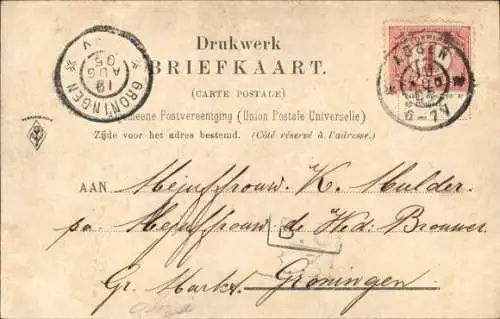 Drukwerk
BRIEFKAART.
(CARTE POSTALE)
Algemeene Postvereeniging (Union Postale Universelle)
Zijde voor het adres bestemd. (Côté réservé à l'adresse.)
GRONINGEN
19
AUG
05
ASSEN
6-7V
AAN Mejuffrouw K. Mulder.
pa Mejuffrouw de Wed: Brouwer
B
Gr. Markt. Groningen